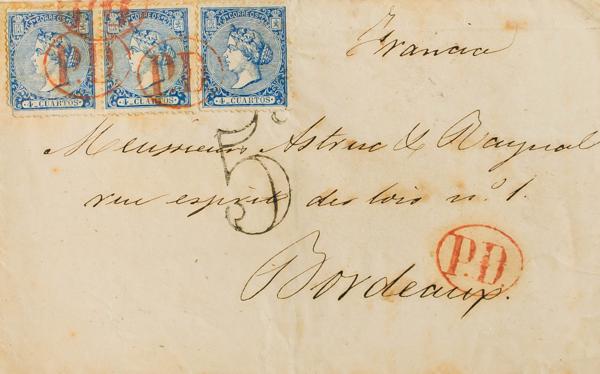 CORREOS CORREOS CORREOS
P.D P.D
4 CUARTOS 4 CUARTOS 4 CUARTOS
Francia
5
Messieurs Astruc & Raynal
rue esprit des lois nº 1.
P.D.
Bordeaux.